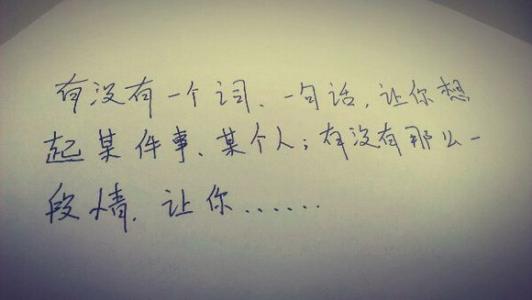 有没有一个词、一句话，让你想
起某件事、某个人；有没有那么一
段情，让你……